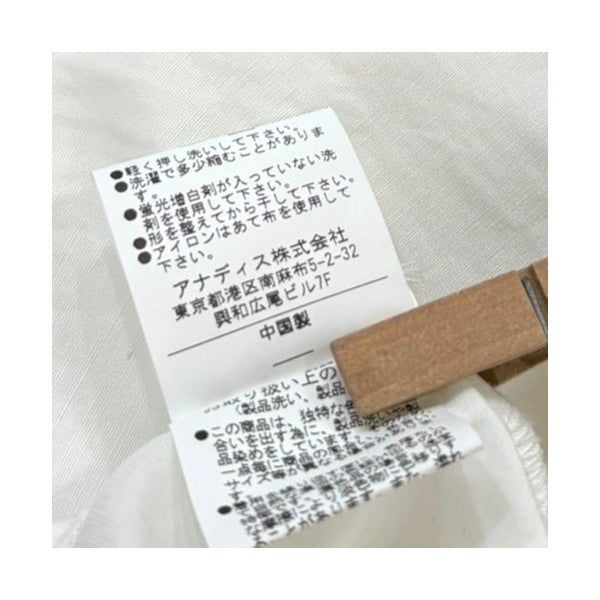 ●軽く押し洗いして下さい。
●洗濯で多少縮むことがありま
す。
●蛍光増白剤が入っていない洗
剤を使用して下さい。
●形を整えてから干して下さい。
●アイロンはあて布を使用して
下さい。
アナディス株式会社
東京都港区南麻布5-2-32
興和広尾ビル7F
中国製
取り扱い上の
(製品洗い、製品
●この商品は、独特な色
合いを出す為に、製品洗いや
品染めをしています。
一点毎に商品
サイズ等が